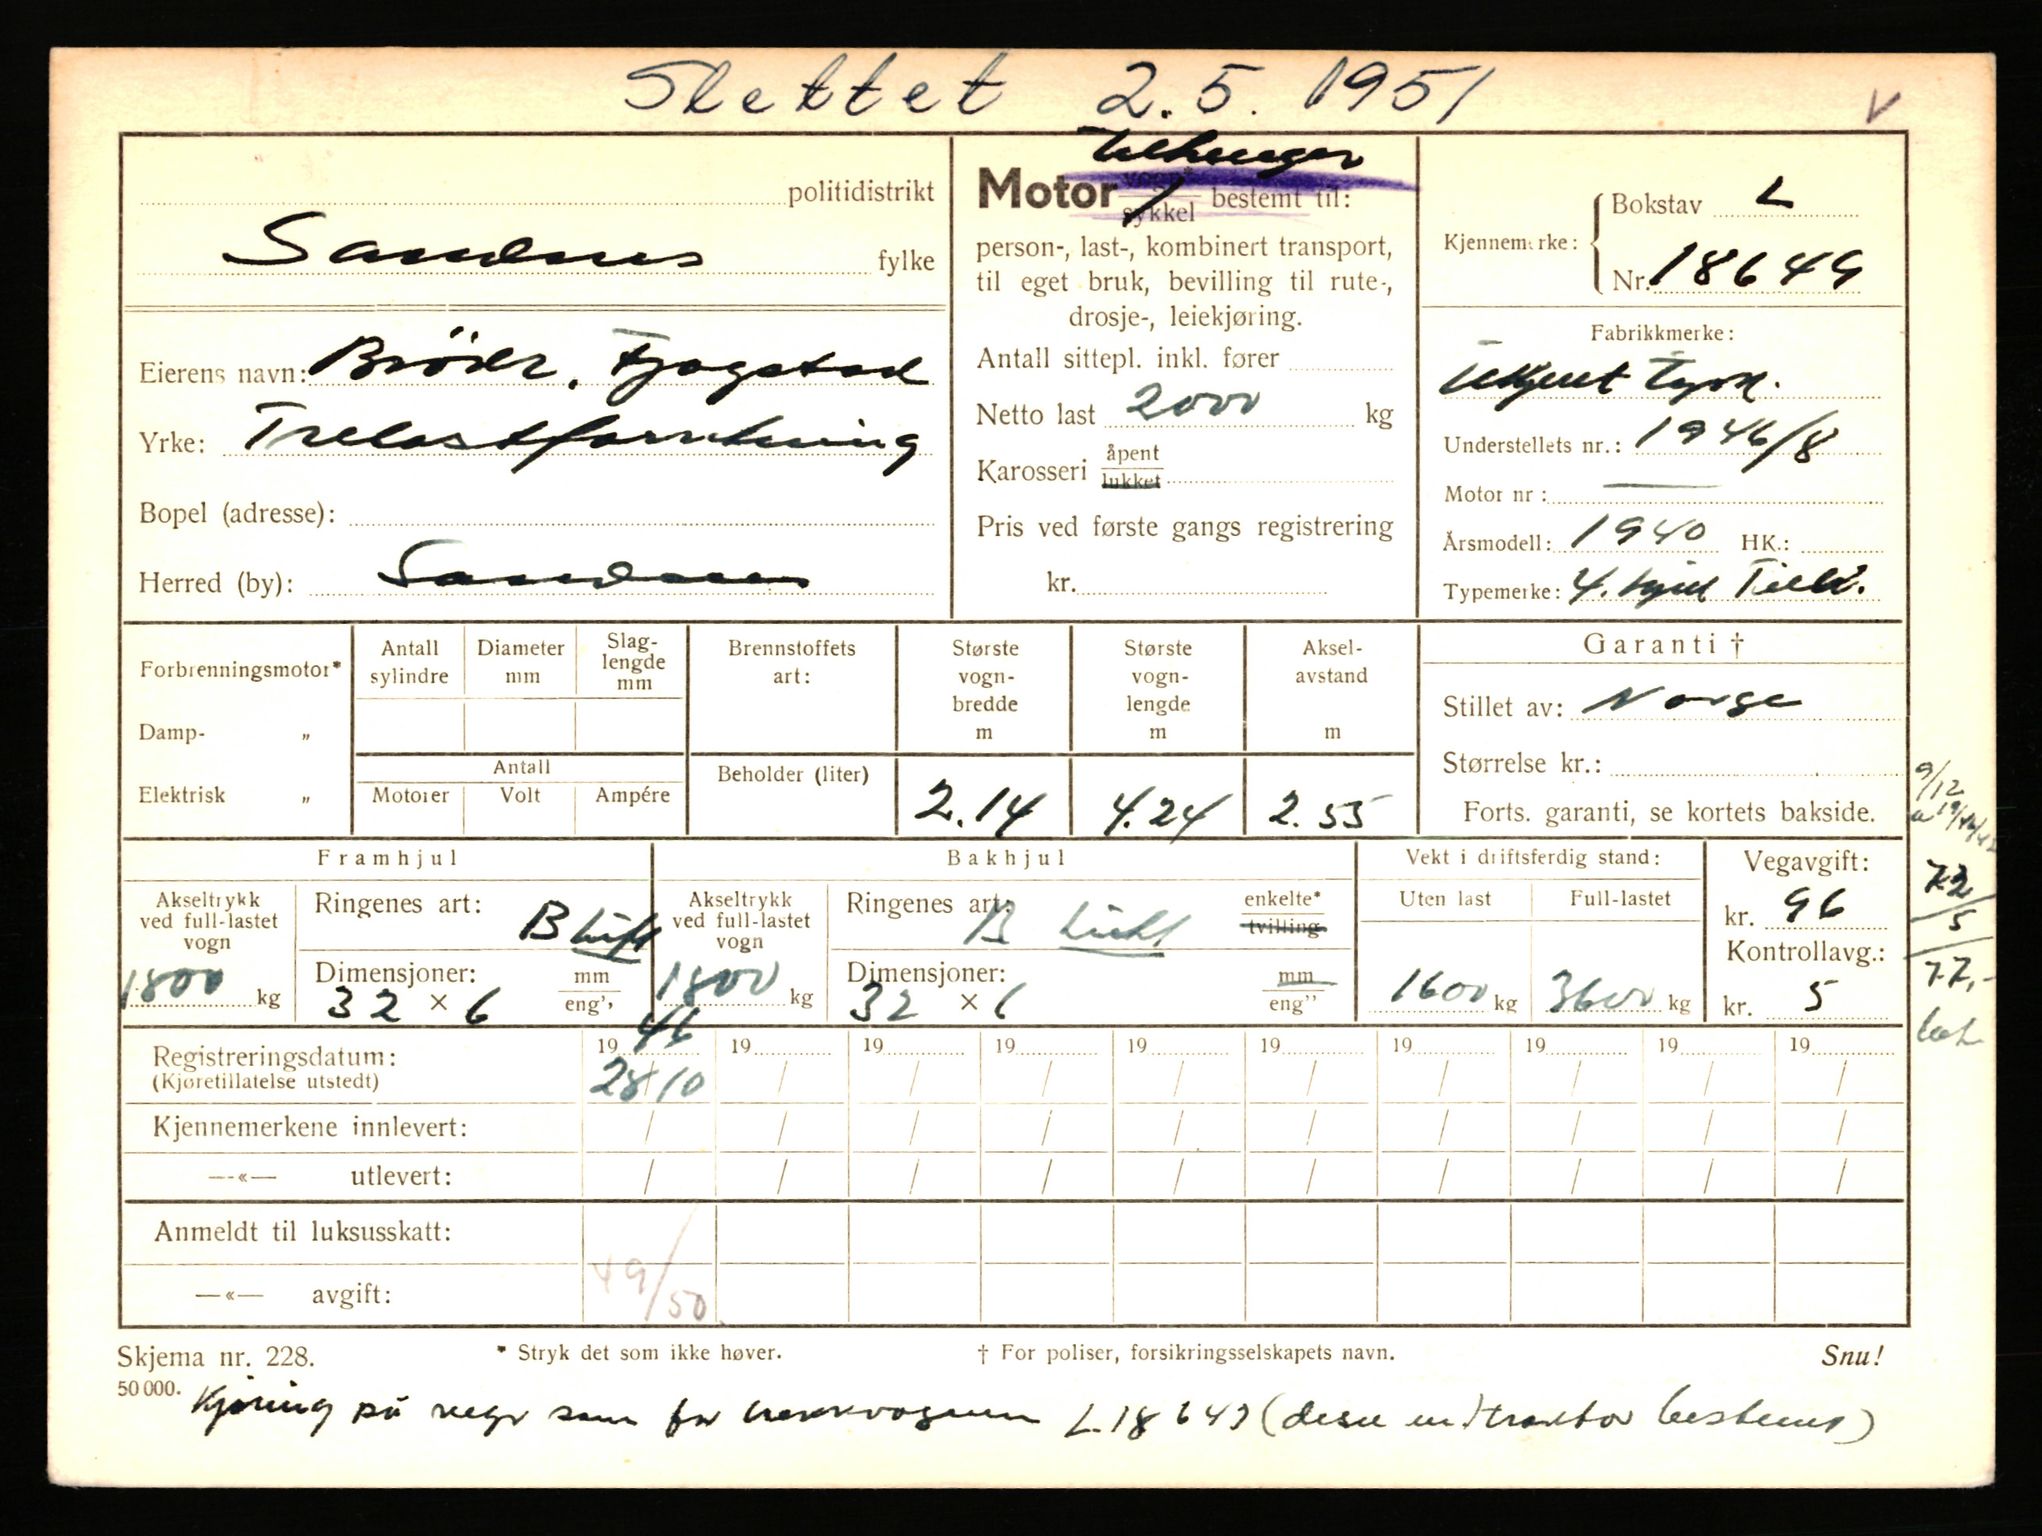 Slettet 2.5. 1951
V
politidistrikt
Sandnes fylke
Eierens navn: Brödr. Fjogstad
Yrke: Trelastforretning
Bopel (adresse):
Herred (by): Sandnes
Tilhenger
Motor vogn* / sykkel bestemt til:
person-, last-, kombinert transport,
til eget bruk, bevilling til rute-,
drosje-, leiekjøring.
Antall sittepl. inkl. fører
Netto last 2000 kg
Karosseri åpent / lukket
Pris ved første gangs registrering
kr.
Kjennemerke: Bokstav L
Nr. 18649
Fabrikkmerke:
Ukjent Tysk.
Understellets nr.: 1946/8
Motor nr: —
Årsmodell: 1940 HK.:
Typemerke: 4. hjul Tilh.
Forbrenningsmotor*
Damp- „
Elektrisk „
Antall sylindre
Diameter mm
Slag-lengde mm
Antall
Motorer Volt Ampére
Brennstoffets art:
Beholder (liter)
Største vogn-bredde m
2.14
Største vogn-lengde m
4.24
Aksel-avstand m
2.55
Garanti †
Stillet av: Norge
Størrelse kr.:
Forts. garanti, se kortets bakside.
9/12
72
5
77,-
bet.
Framhjul
Akseltrykk ved full-lastet vogn
1800 kg
Ringenes art: B luft
Dimensjoner: mm / eng''
32 × 6
Bakhjul
Akseltrykk ved full-lastet vogn
1800 kg
Ringenes art: B luft
enkelte* / tvilling
Dimensjoner: mm / eng''
32 × 6
Vekt i driftsferdig stand:
Uten last Full-lastet
1600 kg 3600 kg
Vegavgift:
kr. 96
Kontrollavg.:
kr. 5
Registreringsdatum: 19 46 19 19 19 19 19 19 19 19 19
(Kjøretillatelse utstedt) 28/10 / / / / / / / / /
Kjennemerkene innlevert: / / / / / / / / / /
—«— utlevert: / / / / / / / / / /
Anmeldt til luksusskatt:
—«— avgift: 49/50
Skjema nr. 228. * Stryk det som ikke høver. † For poliser, forsikringsselskapets navn. Snu!
50 000.
Kjøring på veger som for trekkvognen L.18643 (desse traktor bestemt)